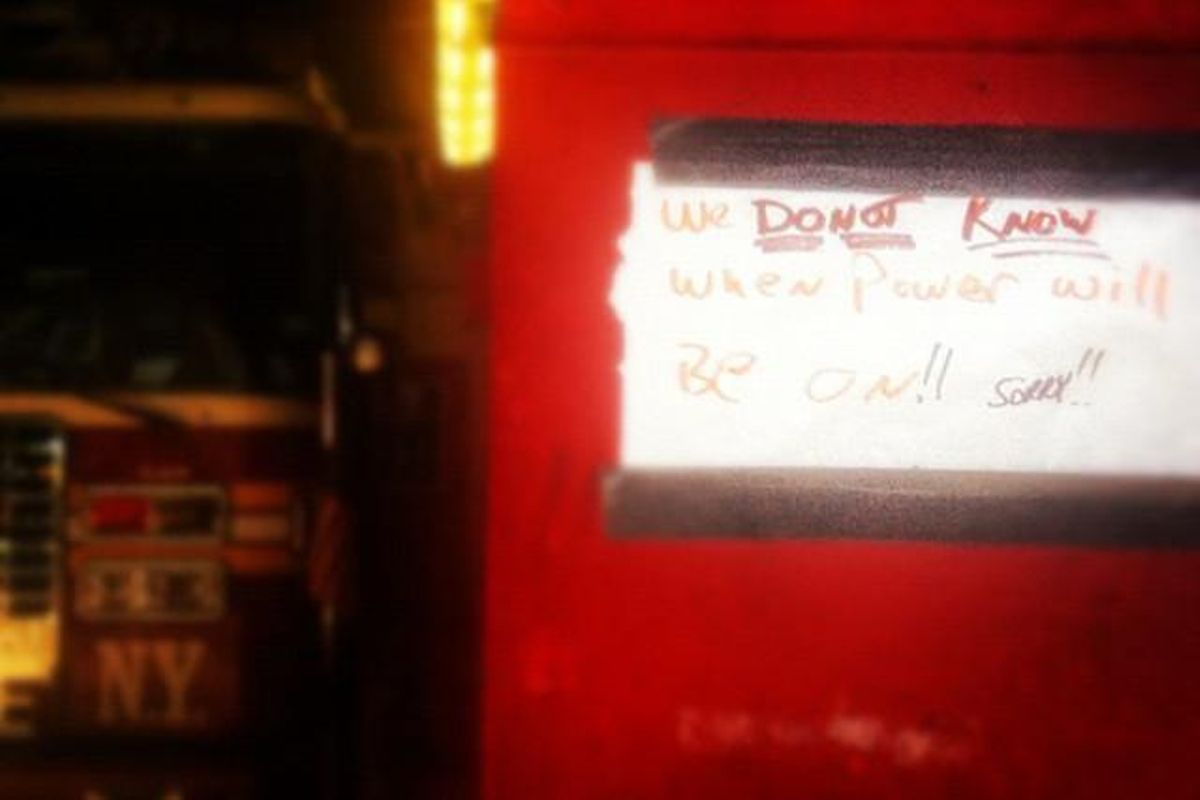 We DO NOT KNOW
when Power will
BE ON!! SORRY!!
N.Y.
E